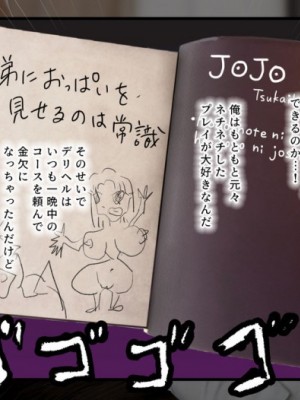 できるのか…!
JOJO
Tsuka
ote
ni
ni jo
俺はもともと元々
ネチネチした
プレイが大好きなんだ
弟におっぱいを
見せるのは常識
そのせいで
デリヘルは
いつも一晩中の
コースを頼んで
金欠に
なっちゃったんだけど
ゴゴゴゴ